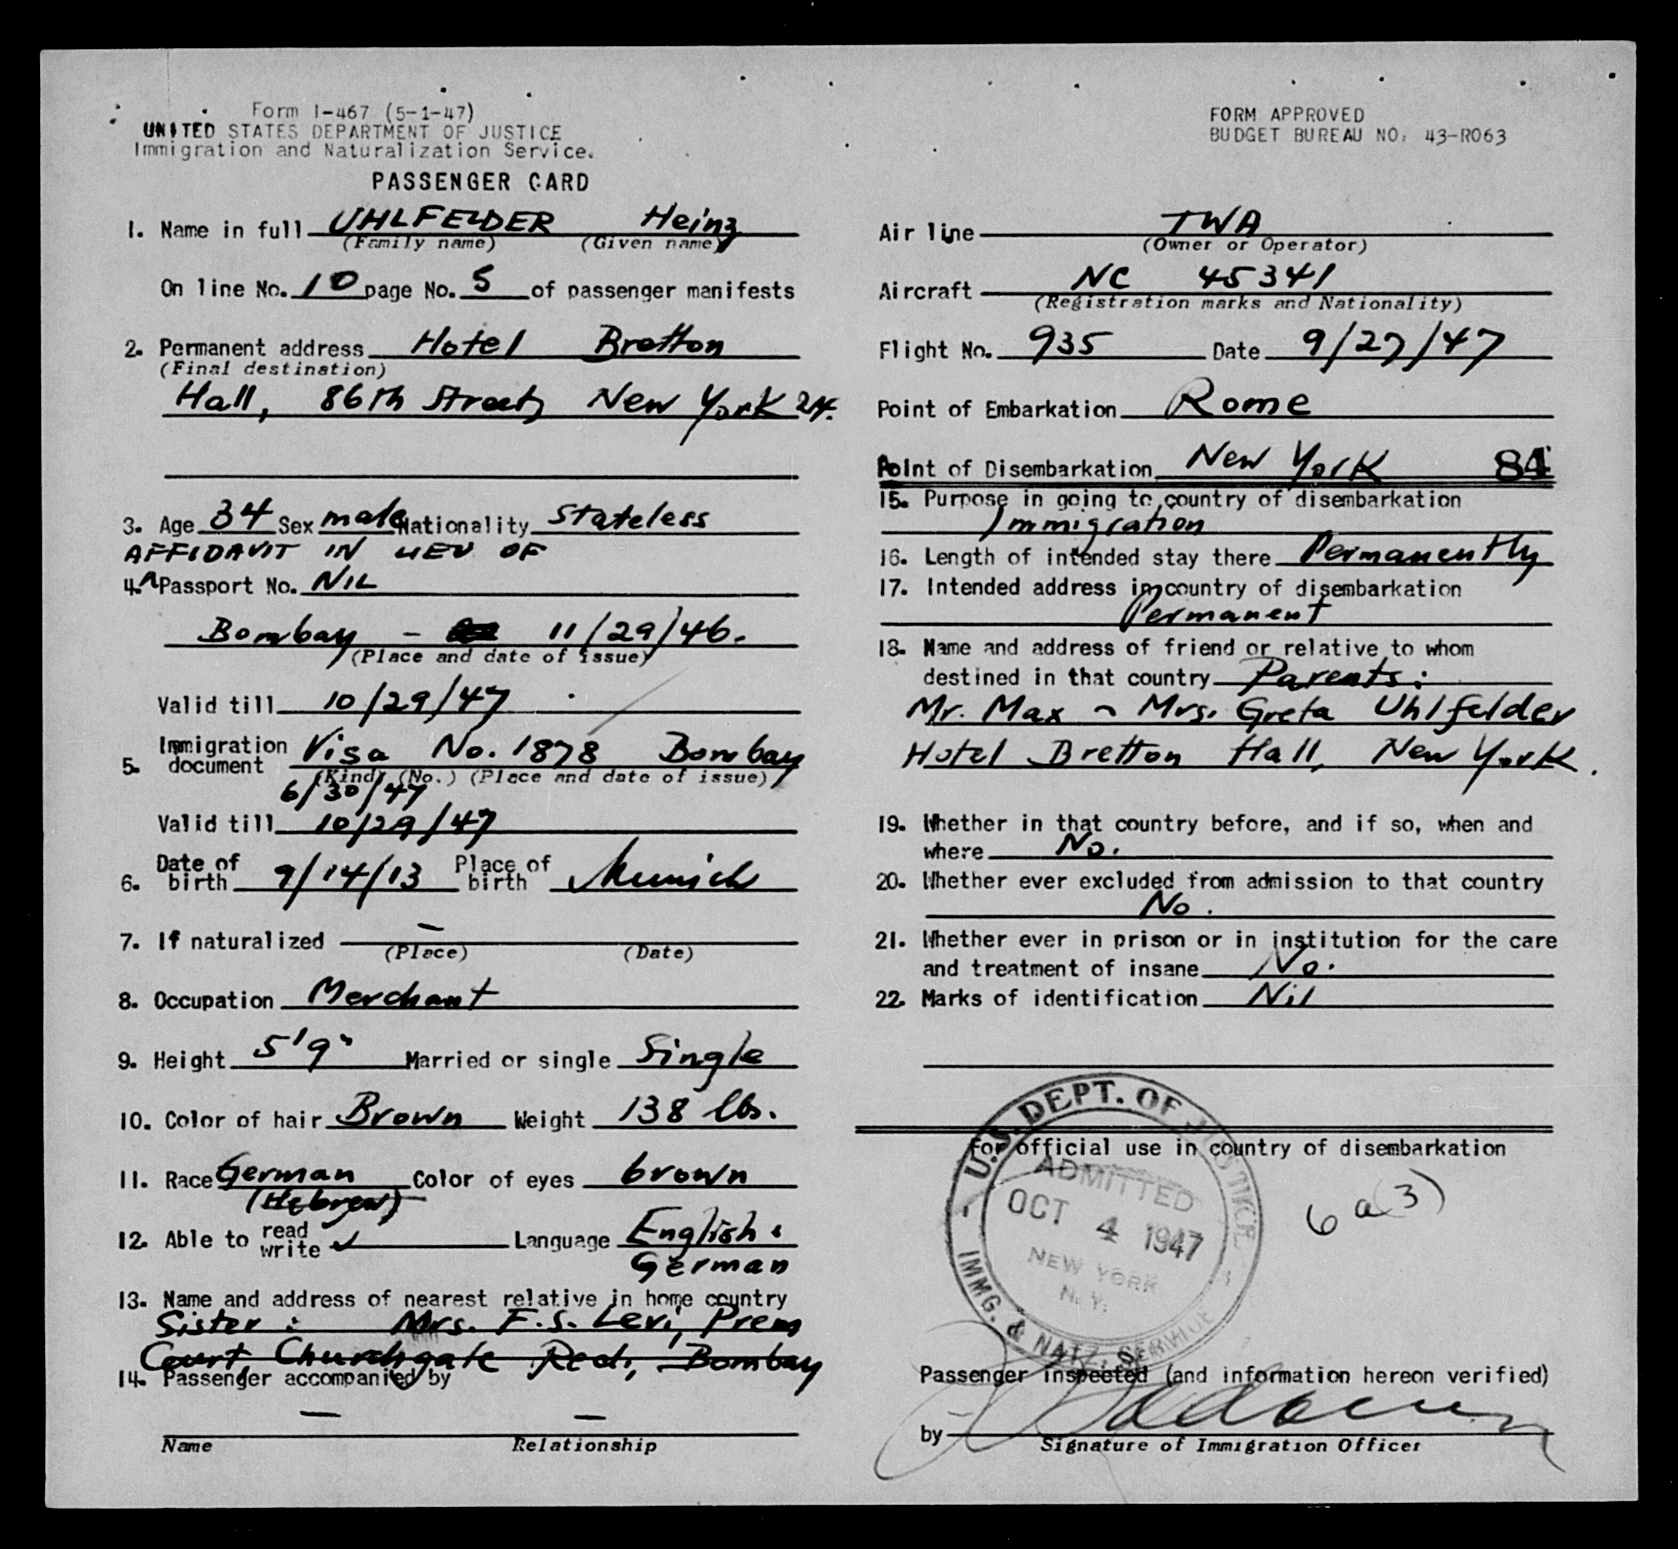 Form I-467 (5-1-47)
UNITED STATES DEPARTMENT OF JUSTICE
Immigration and Naturalization Service.
PASSENGER CARD
1. Name in full UHLFELDER Heinz
(Family name) (Given name)
On line No. 10 page No. 5 of passenger manifests
2. Permanent address Hotel Bretton
(Final destination)
Hall, 86th Street, New York 24.
3. Age 34 Sex male Nationality Stateless
AFFIDAVIT IN LIEU OF
4. Passport No. NIL
Bombay - 11/29/46.
(Place and date of issue)
Valid till 10/29/47
5. Immigration document Visa No. 1878 Bombay
(Kind) (No.) (Place and date of issue)
6/30/47
Valid till 10/29/47
6. Date of birth 9/14/13 Place of birth Munich
7. If naturalized —
(Place) (Date)
8. Occupation Merchant
9. Height 5'9" Married or single Single
10. Color of hair Brown Weight 138 lbs.
11. Race German Color of eyes brown
(Hebrew)
12. Able to read write ✓ Language English &
German
13. Name and address of nearest relative in home country
Sister: Mrs. F.S. Levi, Prem
Court, Churchgate Recl, Bombay
14. Passenger accompanied by
— —
Name Relationship
FORM APPROVED
BUDGET BUREAU NO. 43-R063
Air line TWA
(Owner or Operator)
Aircraft NC 45341
(Registration marks and Nationality)
Flight No. 935 Date 9/27/47
Point of Embarkation Rome
Point of Disembarkation New York 84
15. Purpose in going to country of disembarkation
Immigration
16. Length of intended stay there Permanently
17. Intended address in country of disembarkation
Permanent
18. Name and address of friend or relative to whom
destined in that country Parents:
Mr. Max ~ Mrs. Greta Uhlfelder
Hotel Bretton Hall, New York.
19. Whether in that country before, and if so, when and
where No.
20. Whether ever excluded from admission to that country
No.
21. Whether ever in prison or in institution for the care
and treatment of insane No.
22. Marks of identification Nil
For official use in country of disembarkation
U.S. DEPT. OF JUSTICE
ADMITTED
OCT 4 1947
NEW YORK
N.Y.
IMMG. & NATZ. SERVICE
6a(3)
Passenger inspected (and information hereon verified)
by
Signature of Immigration Officer